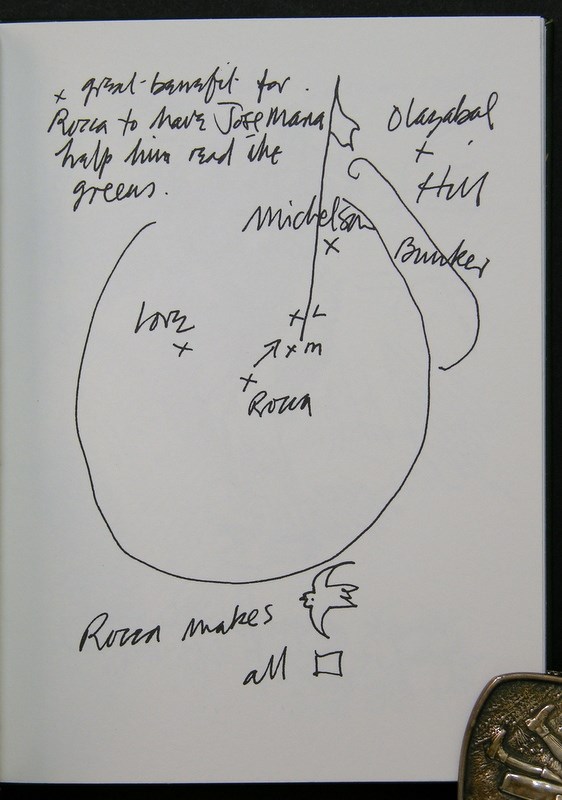 x great benefit for
Rocca to have Jose Maria
help him read the
greens.
Olazabal
x
Hill
Michelson
x
Bunker
Love
x
x L
x m
x
Rocca
Rocca makes
all